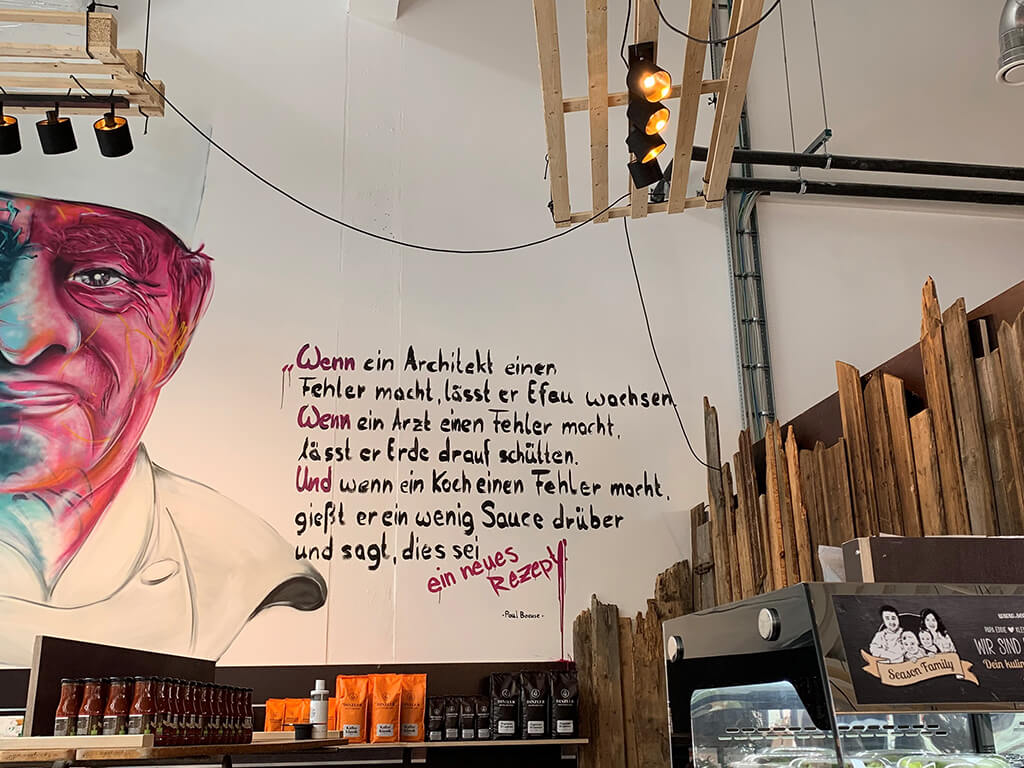 „Wenn ein Architekt einen
Fehler macht, lässt er Efeu wachsen.
Wenn ein Arzt einen Fehler macht,
lässt er Erde drauf schütten.
Und wenn ein Koch einen Fehler macht,
gießt er ein wenig Sauce drüber
und sagt, dies sei
ein neues
Rezept"
- Paul Bocuse -
DINZLER
WIR SIND
Dein
Season Family